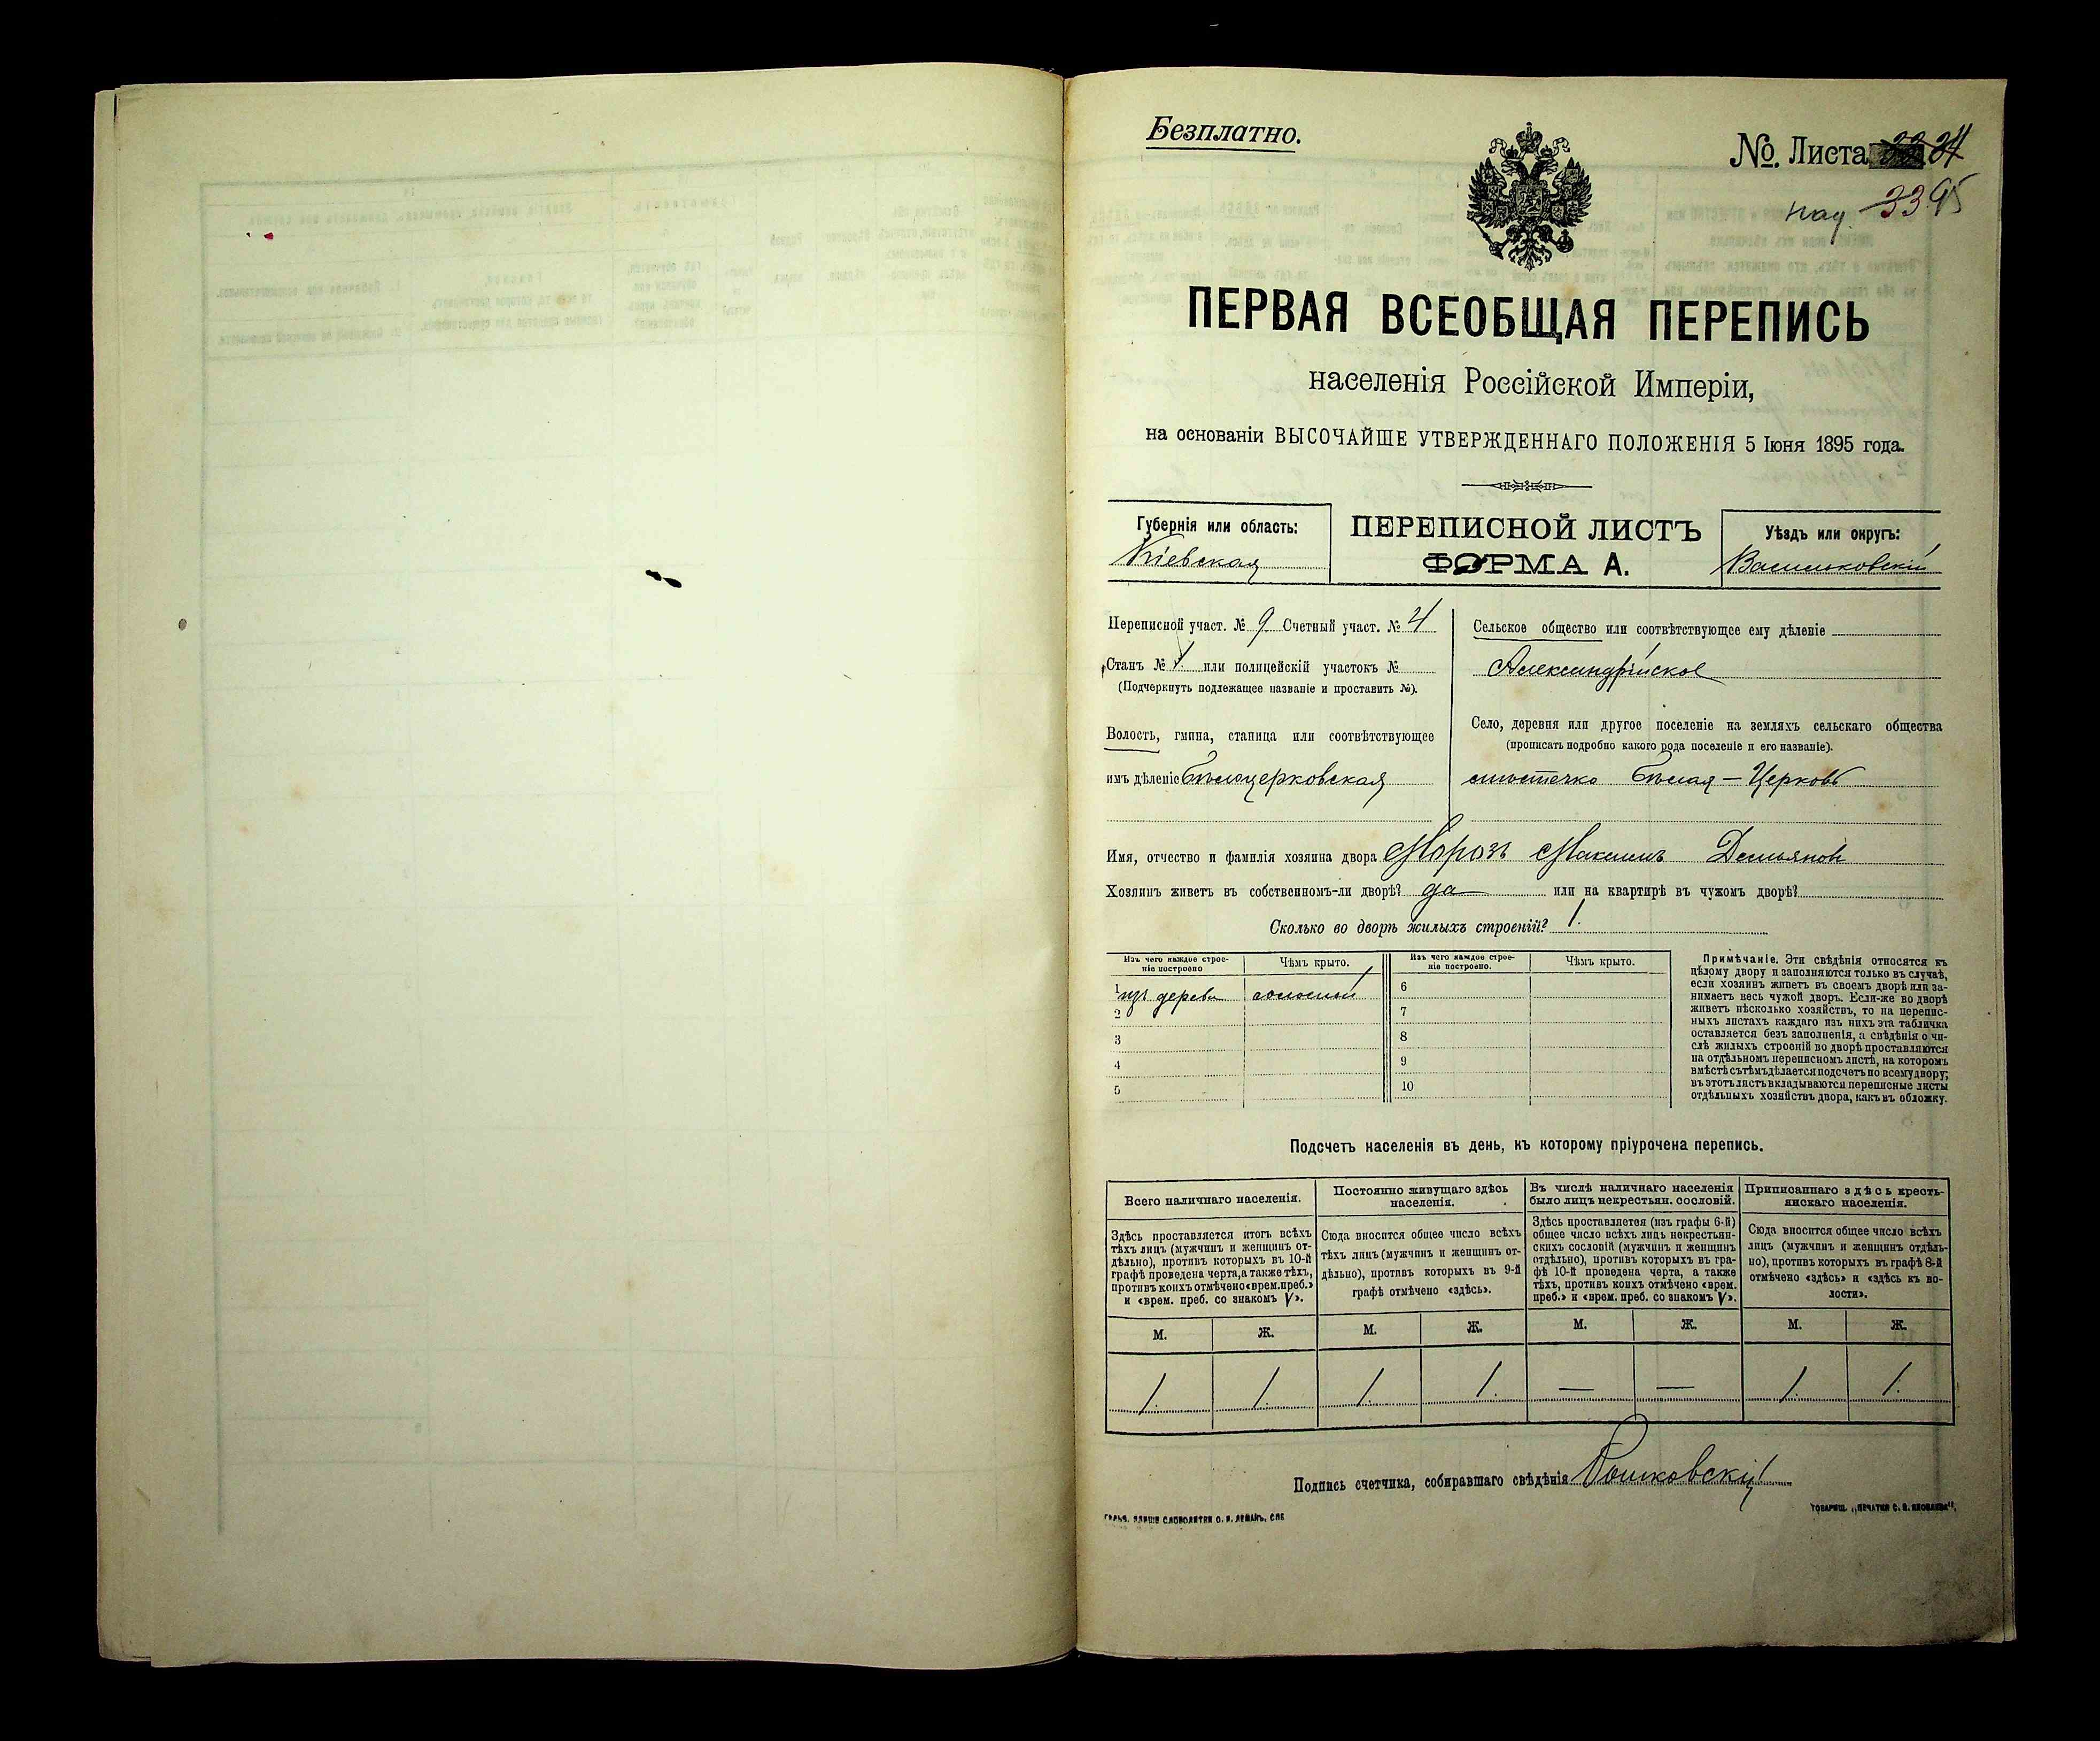 Безплатно.
№. Листа 34
33 95
ПЕРВАЯ ВСЕОБЩАЯ ПЕРЕПИСЬ
населенія Россійской Имперіи,
на основаніи ВЫСОЧАЙШЕ УТВЕРЖДЕННАГО ПОЛОЖЕНІЯ 5 Іюня 1895 года.
Губернія или область:
Кіевская
ПЕРЕПИСНОЙ ЛИСТЪ
ФОРМА А.
Уѣздъ или округъ:
Васильковскій
Переписной участ. № 9 Счетный участ. № 4
Станъ № 1. или полицейскій участокъ №
(Подчеркнуть подлежащее названіе и проставить №).
Волость, гмина, станица или соотвѣтствующее
имъ дѣленіе Бѣлоцерковская
Сельское общество или соотвѣтствующее ему дѣленіе
Александрійское
Село, деревня или другое поселеніе на земляхъ сельскаго общества
(прописать подробно какого рода поселеніе и его названіе).
мѣстечко Бѣлая-Церковь
Имя, отчество и фамилія хозяина двора Морозъ Максимъ Демьяновъ
Хозяинъ живетъ въ собственномъ-ли дворѣ? да или на квартирѣ въ чужомъ дворѣ?
Сколько во дворѣ жилыхъ строеній? 1.
Изъ чего каждое строе-
ніе построено
Чѣмъ крыто.
Изъ чего каждое строе-
ніе построено.
Чѣмъ крыто.
1 изъ дерева соломой
2
3
4
5
6
7
8
9
10
Примѣчаніе. Эти свѣдѣнія относятся къ
цѣлому двору и заполняются только въ случаѣ,
если хозяинъ живетъ въ своемъ дворѣ или за-
нимаетъ весь чужой дворъ. Если-же во дворѣ
живетъ нѣсколько хозяйствъ, то на перепис-
ныхъ листахъ каждаго изъ нихъ эта табличка
оставляется безъ заполненія, а свѣдѣнія о чи-
слѣ жилыхъ строеній во дворѣ проставляются
на отдѣльномъ переписномъ листѣ, на которомъ
вмѣстѣ съ тѣмъ дѣлается подсчетъ по всему двору;
въ этотъ листъ вкладываются переписные листы
отдѣльныхъ хозяйствъ двора, какъ въ обложку.
Подсчетъ населенія въ день, къ которому пріурочена перепись.
Всего наличнаго населенія.
Здѣсь проставляется итогъ всѣхъ
тѣхъ лицъ (мужчинъ и женщинъ от-
дѣльно), противъ которыхъ въ 10-й
графѣ проведена черта, а также тѣхъ,
противъ коихъ отмѣчено «врем. преб.»
и «врем. преб. со знакомъ V».
Постоянно живущаго здѣсь
населенія.
Сюда вносится общее число всѣхъ
тѣхъ лицъ (мужчинъ и женщинъ от-
дѣльно), противъ которыхъ въ 9-й
графѣ отмѣчено «здѣсь».
Въ числѣ наличнаго населенія
было лицъ некрестьян. сословій.
Здѣсь проставляется (изъ графы 6-й)
общее число всѣхъ лицъ некрестьян-
скихъ сословій (мужчинъ и женщинъ
отдѣльно), противъ которыхъ въ гра-
фѣ 10-й проведена черта, а также
тѣхъ, противъ коихъ отмѣчено «врем.
преб.» и «врем. преб. со знакомъ V».
Приписаннаго здѣсь кресть-
янскаго населенія.
Сюда вносится общее число всѣхъ
лицъ (мужчинъ и женщинъ отдѣль-
но), противъ которыхъ въ графѣ 8-й
отмѣчено «здѣсь» и «здѣсь къ во-
лости».
М. Ж. М. Ж. М. Ж. М. Ж.
1. 1. 1. 1. — — 1. 1.
Подпись счетчика, собиравшаго свѣдѣнія
ТОВАРИЩ. „ПЕЧАТНЯ С. П. ЯКОВЛЕВА".